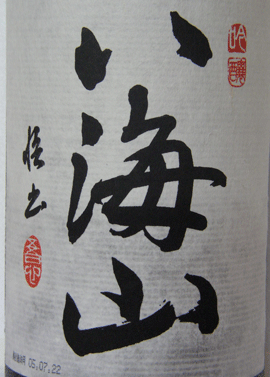 八海山
吟醸
05.07.22